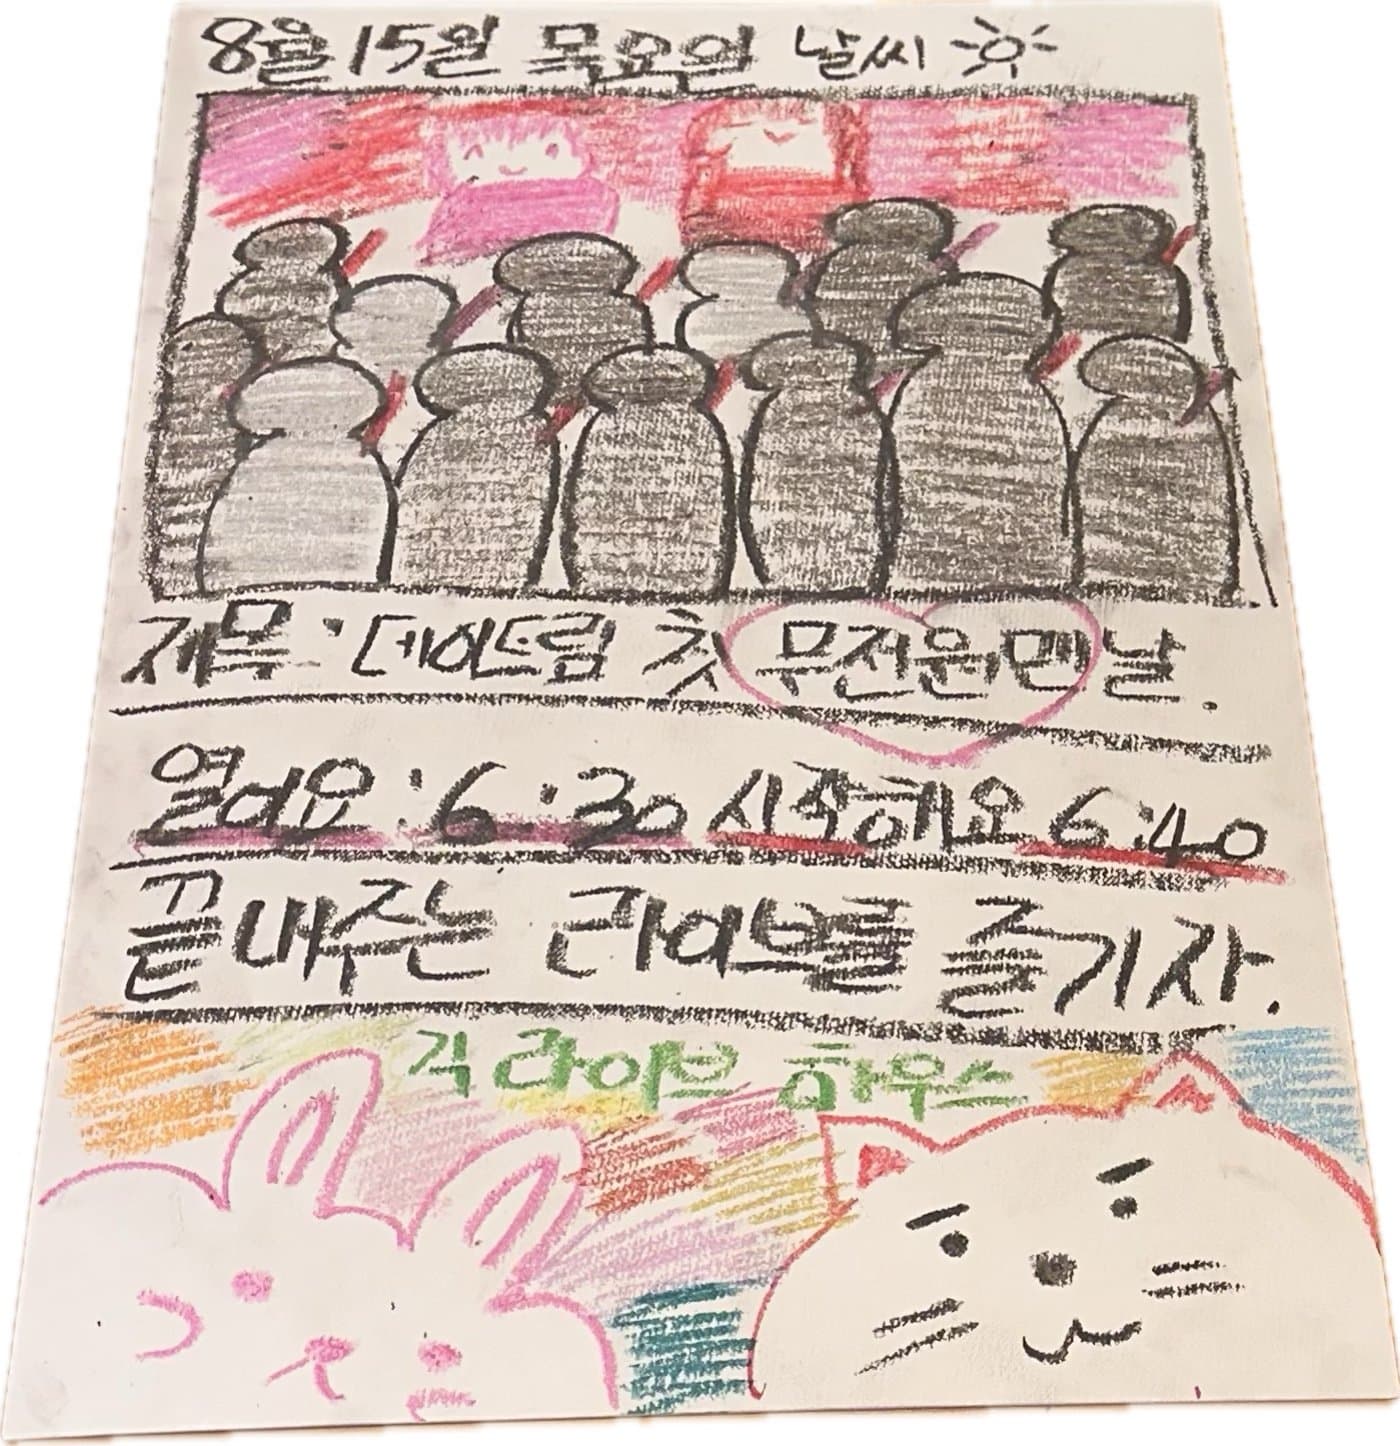 8월 15일 목요일 날씨
제목 : 데이드림 첫 무전원맨날.
열어요 : 6:30 시작해요 6:40
끝내주는 라이브를 즐기자.
긱 라이브 하우스